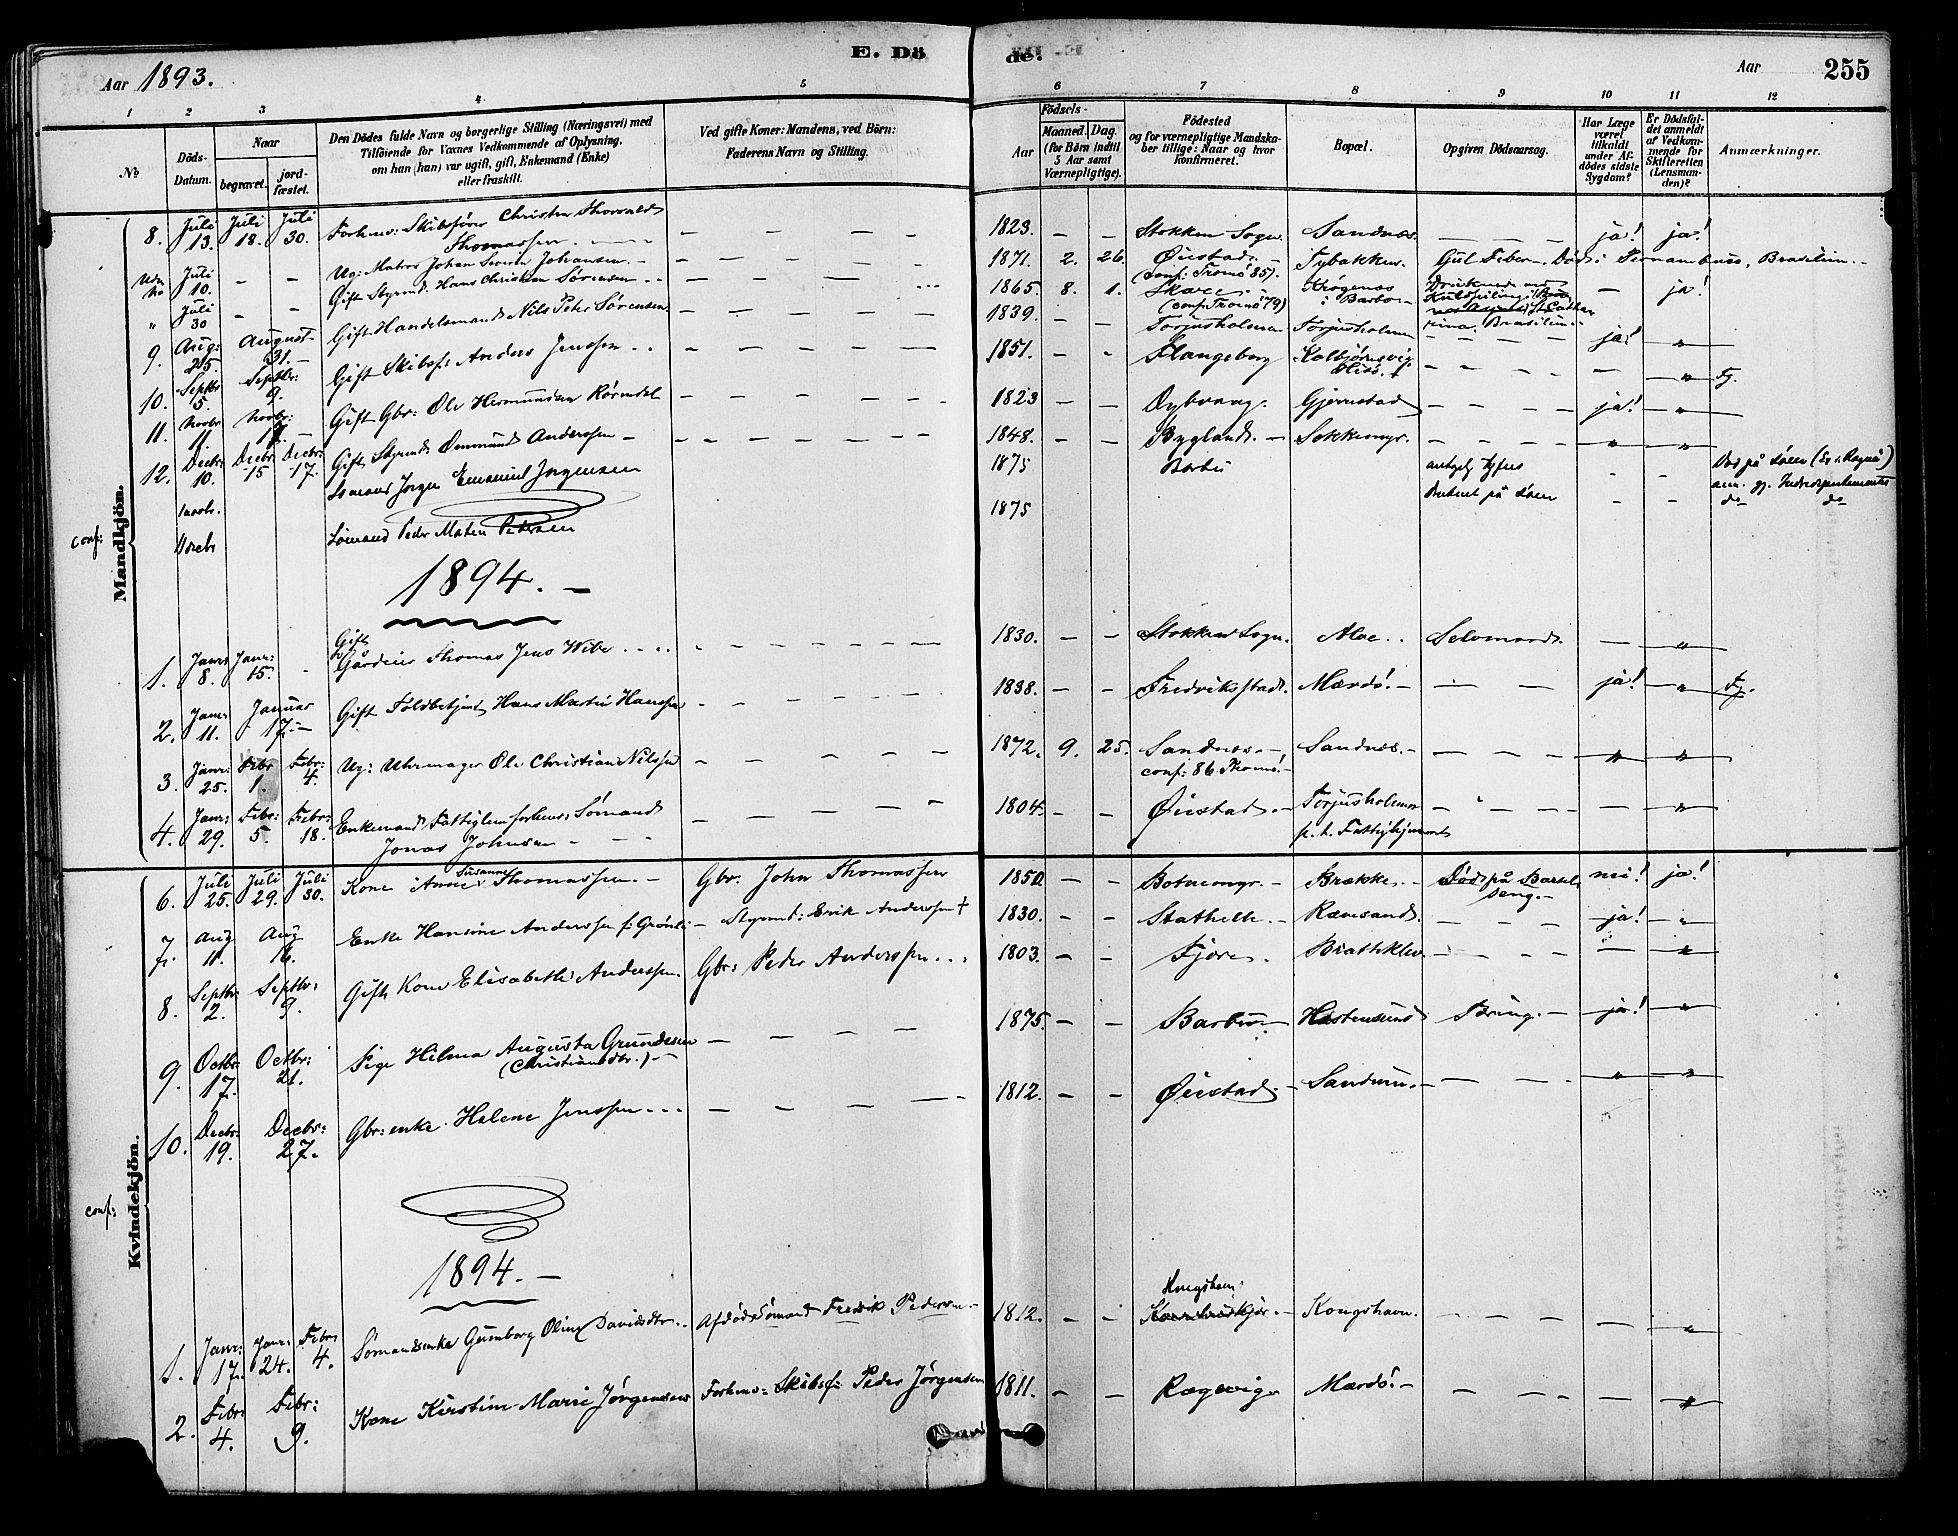 E. Dö
de.
Aar 1893.
Aar
255
1 2 3 4 5 6 7 8 9 10 11 12
No
Döds-
Datum.
Naar
begravet.
jord-
fæstet.
Den Dödes fulde Navn og borgerlige Stilling (Næringsvei) med
Tilföiende for Voxnes Vedkommende af Oplysning,
om han (hun) var ugift, gift, Enkemand (Enke)
eller fraskilt.
Ved gifte Koner: Mandens, ved Börn:
Faderens Navn og Stilling.
Födsels-
Aar
Maaned. Dag.
(for Börn indtil
5 Aar samt
Værnepligtige).
Födested
og for værnepligtige Mandska-
ber tillige: Naar og hvor
konfirmeret.
Bopæl.
Opgiven Dödsaarsag.
Har Læge
været
tilkaldt
under Af-
dödes sidste
Sygdom?
Er Dödsfal-
det anmeldt
af Vedkom-
mende for
Skifteretten
(Lensman-
den)?
Anmærkninger.
Mandkjön.
8. Juli 13. Juli 18. Juli 30. Forhenv: Skibsfører Christen Thorvald
Thomassen. 1823. — — Stokken Sogn. Sandnæs. ja! ja!
Uden No Juli 10. — — Ug: Matros Johan Severin Johansen. 1871. 2. 26. Øiestad. Tybakken. Gul Feber. Død i Pernambuco, Brasilien.
(conf: Tromø 85).
" Juli 30 — — Gift Styrmd. Hans Christian Sørensen 1865. 8. 1. Skare Krøgenæs i Barbo — ja!
(conf: Tromø 79)
9. Aug: 25. August 31. Gift Handelsmand Nils Peter Sørensen 1839. — — Torjusholmen Torjusholmen ja! "
10. Septbr 5. Septbr: 9. Gift Skibsf: Anders Jenssen 1851. — — Flangeborg Kolbjørnsvig Hisø. — " Fg.
11. Novbr 11. Novbr: 17. Gift Gbr: Ole Hermundsen Rørndal 1823 — — Dybvaag. Gjerrestad ja! "
12. Decbr: 10. Decbr: 15 Decbr: 17. Gift Styrmd. Ommund Anderssen 1848. — — Bygland. Sokkemyr. " "
conf: novbr. Sømand Jørgen Emanuel Jørgensen 1875 Barbu antagelig tyfus Død på søen
novbr Sømand Peder Martin Petersen 1875 druknet på søen do do
1894.
1. Janr: 8. Janr: 15. Gift
Gårdeier Thomas Jens Wibe 1830. — — Stokken Sogn. Alve. Selvmord. — "
2. Janr: 11. Januar 17. Gift Toldbetjent Hans Martin Hanssen 1838. — — Fredriksstad. Mærdø. ja! " Fg.
3. Janr: 25. Febr 1. Febr: 4. Ug: Uhrmager Ole Christian Nilssen 1872. 9. 25. Sandnæs. Sandnæs. " "
conf: 86 Tromø.
4. Janr: 29. Febr: 5. Febr: 18. Enkemand Fattiglem forhenv: Sømand
Jonas Johnsen 1804. — — Øiestad. Torjusholmen — "
p.t. Fattighjemmet
Kvindekjön.
6. Juli 25. Juli 29. Juli 30. Kone Anne Susanne Thomassen. Gbr. John Thomassen 1850. — — Botnemyr. Brække. Død på Barsel-
seng. nei! ja!
7. Aug 11. Aug 16. Enke Hansine Anderssen f. Grønli Styrmd: Erik Anderssen † 1830. — — Stathelle. Rævesand. ja! "
8. Septbr: 2. Septbr: 9. Gift Kone Elisabeth Anderssen. Gbr: Peder Anderssen 1803. — — Fjære. Bratteklev — "
9. Octbr: 17. Octbr: 21. Pige Hilma Augusta Grundesen
(Christiansdtr.) 1875. — — Barbu. Hastensund Bring. ja! "
10. Decbr: 19. Decbr: 27. Gbr: enke. Helene Jenssen 1812. — — Øiestad. Sandum. " "
conf:
1894.
1. Janr: 17. Janr: 24. Febr: 4. Sømandsenke Gunborg Oline Davidsdtr. Afdøde Sømand Fredrik Pedersen 1812. — — Kongshavn. "
2. Febr: 4. Febr: 9. Kone Kirstine Marie Jørgensen Forhenv: Skibsf: Peder Jørgensen 1811. — — Rægevig Mærdø. "